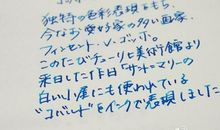 独特の色彩表現をもち、
今なお愛好家の多い画家、
フィンセント・V・ゴッホ。
このたびチューリヒ美術館より
来日した作品「サント=マリーの
白い小屋」にも使われている
"コバルト"をインクで表現しました